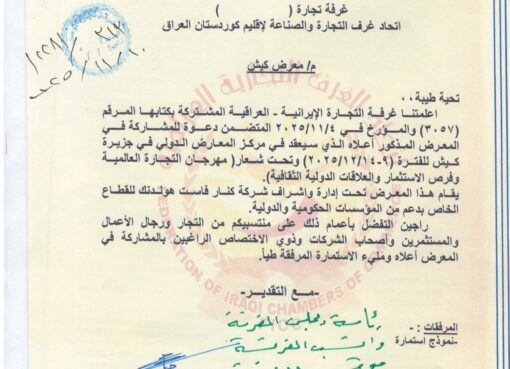 غرفة تجارة ( )
اتحاد غرف التجارة والصناعة لإقليم كوردستان العراق
م/ معرض كيش
تحية طيبة . .
اعلمتنا غرفة التجارة الإيرانية - العراقية المشتركة بكتابها المرقم
(٣٠٥٧) والمؤرخ في ٢٠٢٥/١١/٤ المتضمن دعوة للمشاركة في
المعرض المذكور أعلاه الذي سيعقد في مركز المعارض الدولي في جزيرة
كيش للفترة (٩-٢٠٢٥/١٢/١٤) وتحت شعار( مهرجان التجارة العالمية
وفرص الاستثمار والعلاقات الدولية الثقافية).
يقام هذا المعرض تحت إدارة واشراف شركة كنار فاست هولدنك للقطاع
الخاص بدعم من المؤسسات الحكومية والدولية.
راجين التفضل بأعمام ذلك على منتسبيكم من التجار ورجال الأعمال
والمستثمرين وأصحاب الشركات وذوي الاختصاص الراغبين بالمشاركة في
المعرض أعلاه ومليء الاستمارة المرفقة طياً.
-مـع التقديـر-
المرفقات : -
-نموذج استمارة